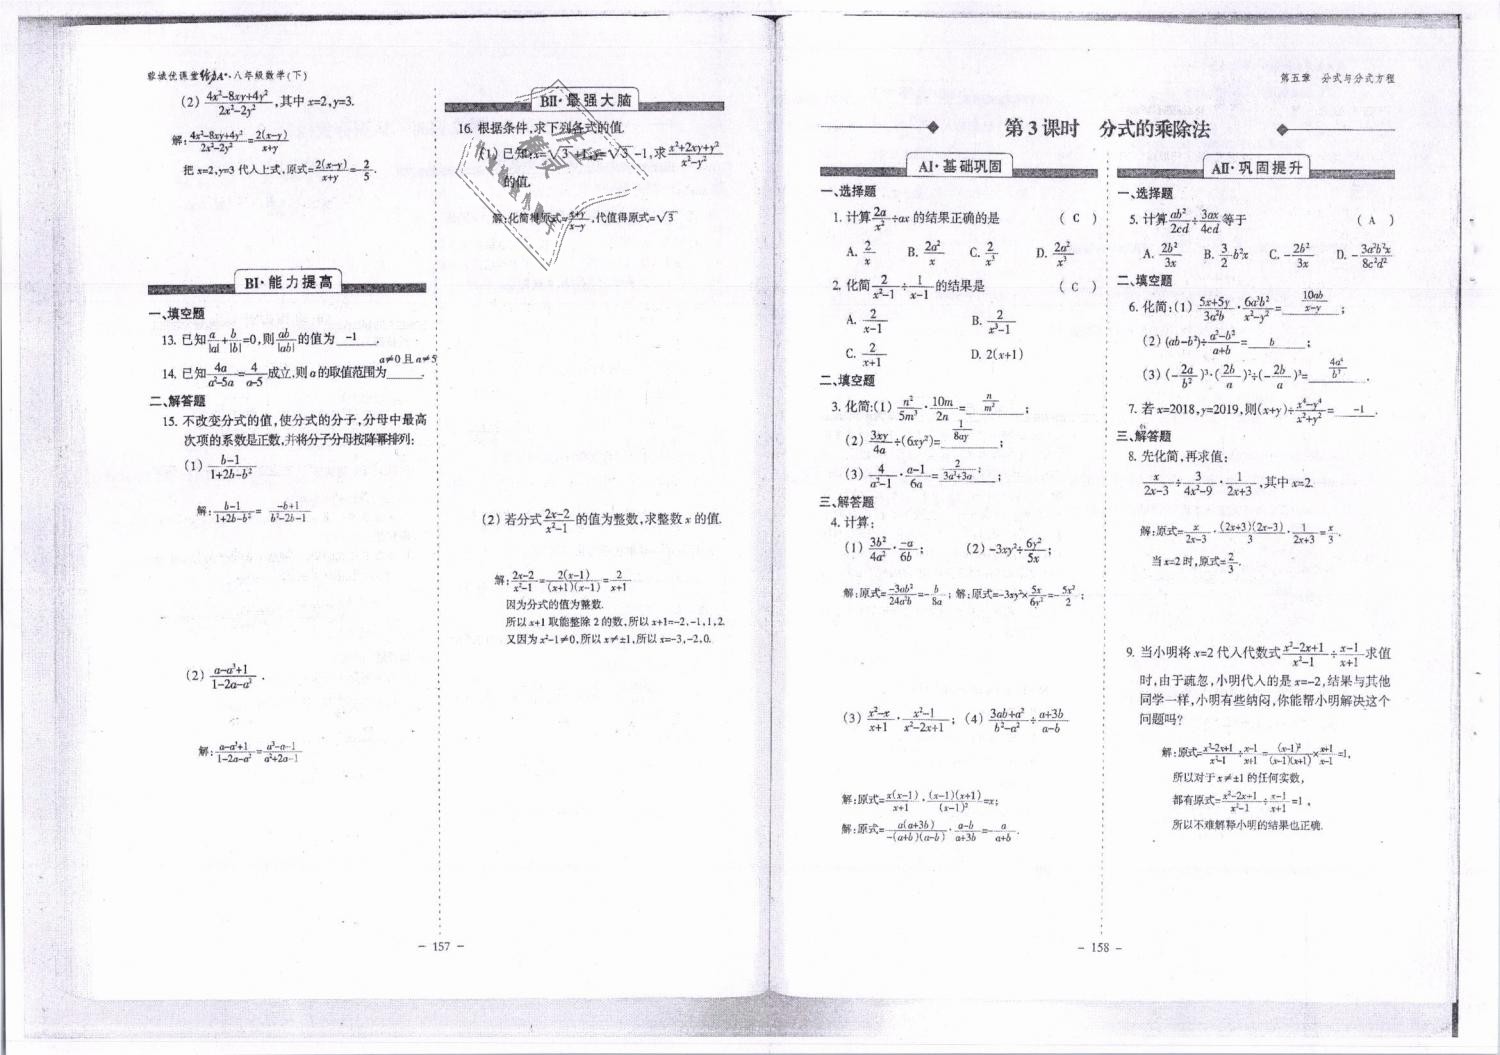 蓉城优课堂给力A+·八年级数学(下)
(2) (4x²-8xy+4y²)/(2x²-2y²),其中 x=2,y=3.
解:(4x²-8xy+4y²)/(2x²-2y²)=2(x-y)/(x+y)
把 x=2,y=3 代入上式,原式=2(x-y)/(x+y)=-2/5.
BⅠ·能力提高
一、填空题
13. 已知a/|a|+b/|b|=0,则ab/|ab|的值为 -1 .
14. 已知4a/(a²-5a)=4/(a-5)成立,则 a 的取值范围为 a≠0 且 a≠5 .
二、解答题
15. 不改变分式的值,使分式的分子,分母中最高
次项的系数是正数,并将分子分母按降幂排列:
(1) (b-1)/(1+2b-b²)
解:(b-1)/(1+2b-b²)=(-b+1)/(b²-2b-1)
(2) (a-a³+1)/(1-2a-a²).
解:(a-a³+1)/(1-2a-a²)=(a³-a-1)/(a²+2a-1)
BⅡ·最强大脑
16. 根据条件,求下列各式的值.
(1) 已知:x=√3+1,y=√3-1,求(x²+2xy+y²)/(x²-y²)
的值.
解:化简得原式=(x+y)/(x-y),代值得原式=√3
(2) 若分式(2x-2)/(x²-1)的值为整数,求整数 x 的值.
解:(2x-2)/(x²-1)=2(x-1)/((x+1)(x-1))=2/(x+1)
因为分式的值为整数.
所以 x+1 取能整除 2 的数,所以 x+1=-2,-1,1,2.
又因为 x²-1≠0,所以 x≠±1,所以 x=-3,-2,0.
- 157 -
第五章 分式与分式方程
第 3 课时 分式的乘除法
AⅠ·基础巩固
一、选择题
1. 计算2a/x²÷ax 的结果正确的是 ( C )
A. 2/x B. 2a²/x C. 2/x³ D. 2a²/x³
2. 化简2/(x²-1)÷1/(x-1)的结果是 ( C )
A. 2/(x-1) B. 2/(x³-1)
C. 2/(x+1) D. 2(x+1)
二、填空题
3. 化简:(1) n²/5m³·10m/2n= n/m² ;
(2) 3xy/4a÷(6xy²)= 1/8ay ;
(3) 4/(a²-1)·(a-1)/6a= 2/(3a²+3a) ;
三、解答题
4. 计算:
(1) 3b²/4a²·-a/6b; (2) -3xy²÷6y²/5x;
解:原式=-3ab²/24a²b=-b/8a; 解:原式=-3xy²×5x/6y²=-5x²/2;
(3) (x²-x)/(x+1)·(x²-1)/(x²-2x+1); (4) (3ab+a²)/(b²-a²)÷(a+3b)/(a-b)
解:原式=x(x-1)/(x+1)·(x-1)(x+1)/(x-1)²=x;
解:原式=a(a+3b)/(-(a+b)(a-b))·(a-b)/(a+3b)=-a/(a+b).
AⅡ·巩固提升
一、选择题
5. 计算ab²/2cd÷3ax/4cd等于 ( A )
A. 2b²/3x B. 3/2 b²x C. -2b²/3x D. -3a²b²x/8c²d²
二、填空题
6. 化简:(1) (5x+5y)/3a²b·6a³b²/(x²-y²)= 10ab/(x-y) ;
(2) (ab-b²)÷(a²-b²)/(a+b)= b ;
(3) (-2a/b²)³·(2b/a)²÷(-2b/a)³= 4a⁴/b⁷ .
7. 若 x=2018,y=2019,则(x+y)÷(x⁴-y⁴)/(x²+y²)= -1 .
三、解答题
8. 先化简,再求值:
x/(2x-3)÷3/(4x²-9)·1/(2x+3),其中 x=2.
解:原式=x/(2x-3)·(2x+3)(2x-3)/3·1/(2x+3)=x/3.
当 x=2 时,原式=2/3.
9. 当小明将 x=2 代入代数式(x²-2x+1)/(x²-1)÷(x-1)/(x+1)求值
时,由于疏忽,小明代入的是 x=-2,结果与其他
同学一样,小明有些纳闷,你能帮小明解决这个
问题吗?
解:原式=(x²-2x+1)/(x²-1)÷(x-1)/(x+1)=(x-1)²/((x-1)(x+1))×(x+1)/(x-1)=1,
所以对于 x≠±1 的任何实数,
都有原式=(x²-2x+1)/(x²-1)÷(x-1)/(x+1)=1,
所以不难解释小明的结果也正确.
- 158 -